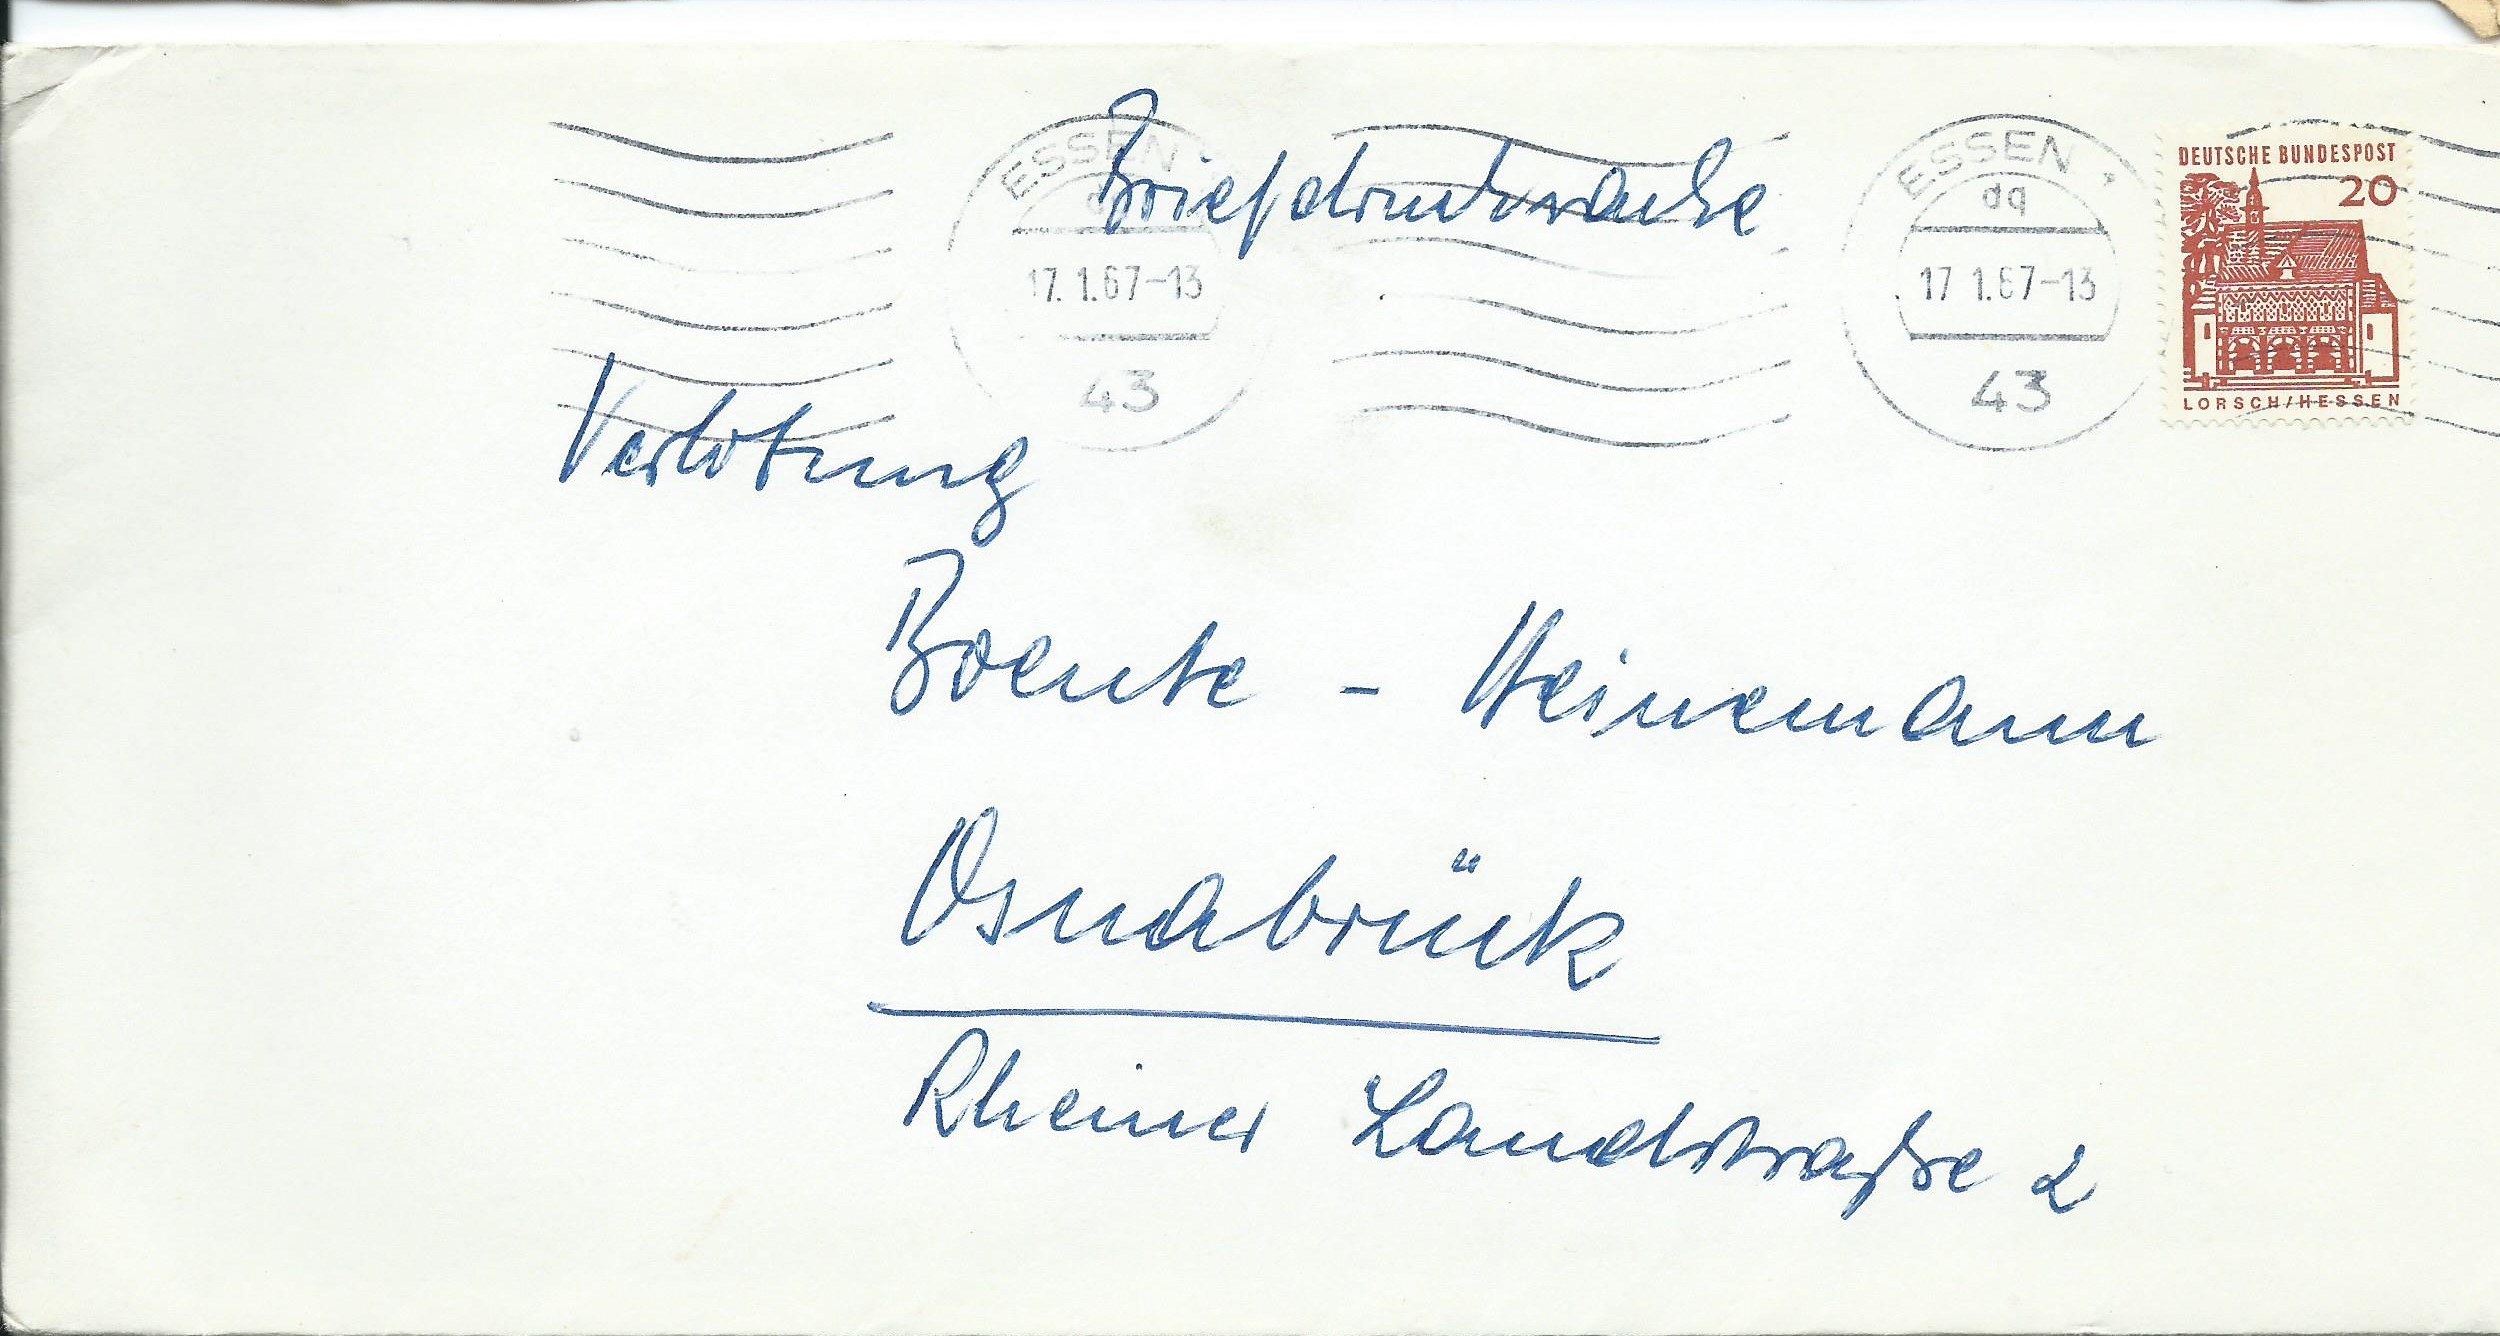 Briefdrucksache
ESSEN
dq
17.1.67-13
43
ESSEN
dq
17 1.67-13
43
DEUTSCHE BUNDESPOST
20
LORSCH/HESSEN
Verlobung
Boente - Heinemann
Osnabrück
Rheiner Landstraße 2